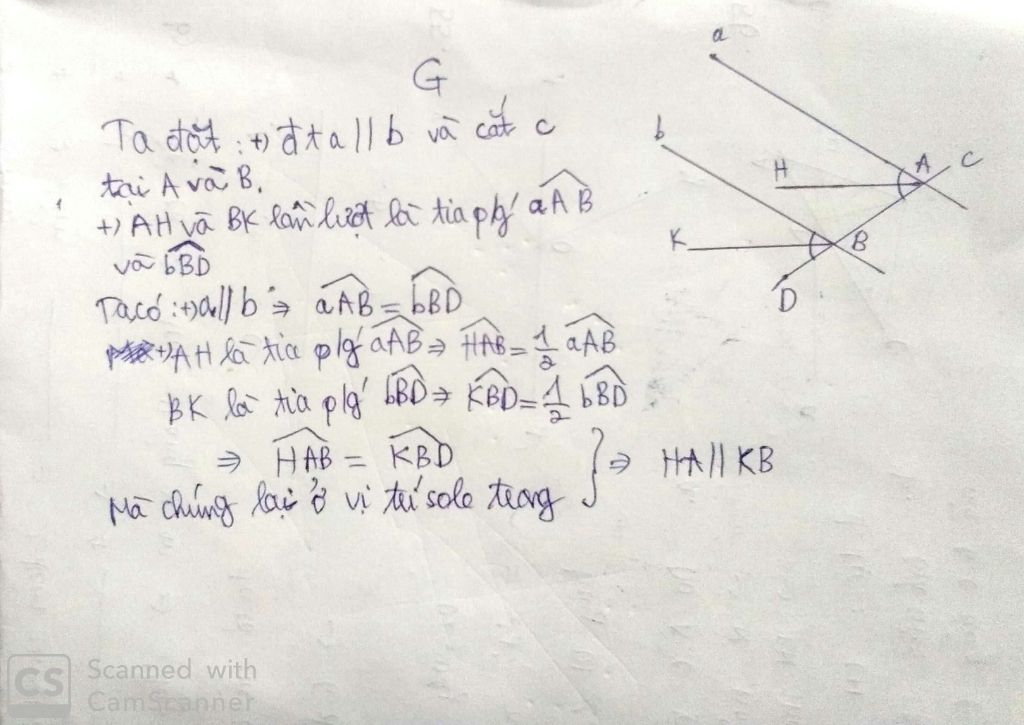 G
Ta đặt : +) đt a // b và cắt c
tại A và B.
+) AH và BK lần lượt là tia p/g aAB
và bBD
Ta có : +) a // b ⇒ aAB = bBD
+) AH là tia p/g aAB ⇒ HAB = 1/2 aAB
BK là tia p/g bBD ⇒ KBD = 1/2 bBD
⇒ HAB = KBD
Mà chúng lại ở vị trí sole trong
} ⇒ HA // KB
a
b
H
A
C
K
B
D
CS Scanned with
CamScanner